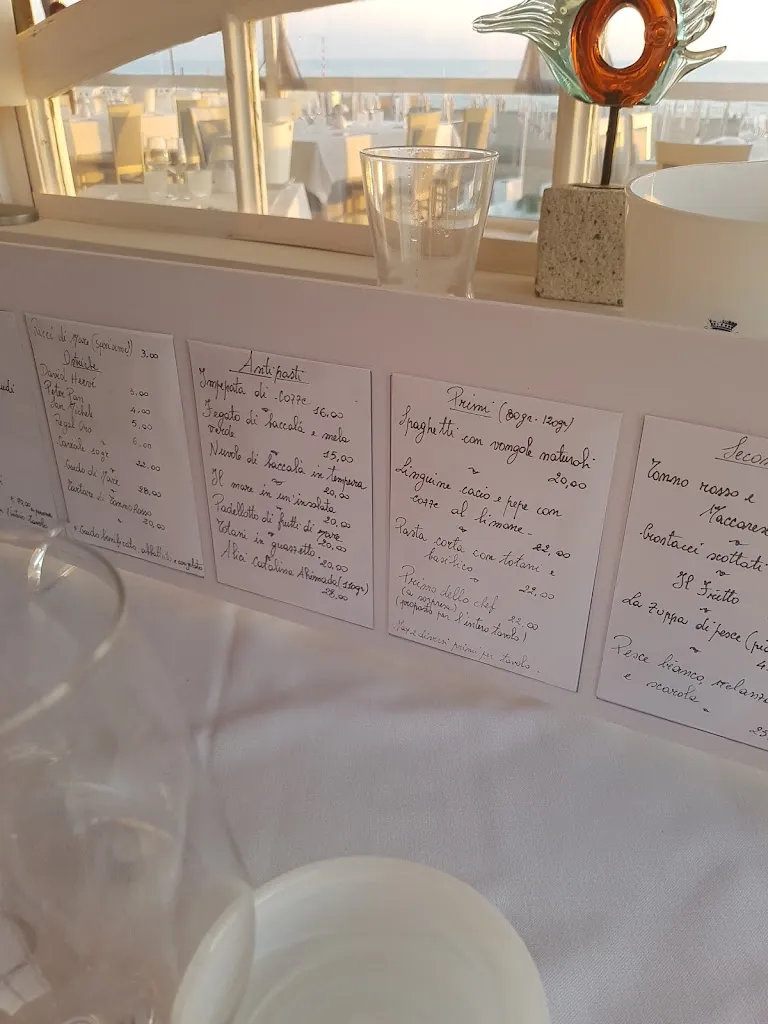 Ricci di Mare (speriamo!) 3,00
Ostriche
David Hervé 5,00
Peter Pan 4,00
San Michele 5,00
Regal Oro 6,00
Caviale 10gr 22,00
Crudo di Mare 28,00
Tartare di Tonno Rosso
20,00
* Crudo bonificato, abbattuto e congelato
Antipasti
Impepata di cozze
16,00
Fegato di baccalà e mela
verde
15,00
Nuvole di baccalà in tempura
20,00
Il mare in un'insalata
20,00
Padellotto di frutti di mare
20,00
Totani in guazzetto
20,00
Alici Catalina Ahimada (110gr)
28,00
Primi (80gr. 120gr)
Spaghetti con vongole naturali
20,00
Linguine cacio e pepe con
cozze al limone
22,00
Pasta corta con totani e
basilico
22,00
Primo dello chef 22,00
(a sorpresa)
(proposto per l'intero tavolo)
Max 2 diversi primi per tavolo
Tonno rosso e
Crostacei scottati
Il Fritto
La zuppa di pesce
Pesce bianco,
e scarola